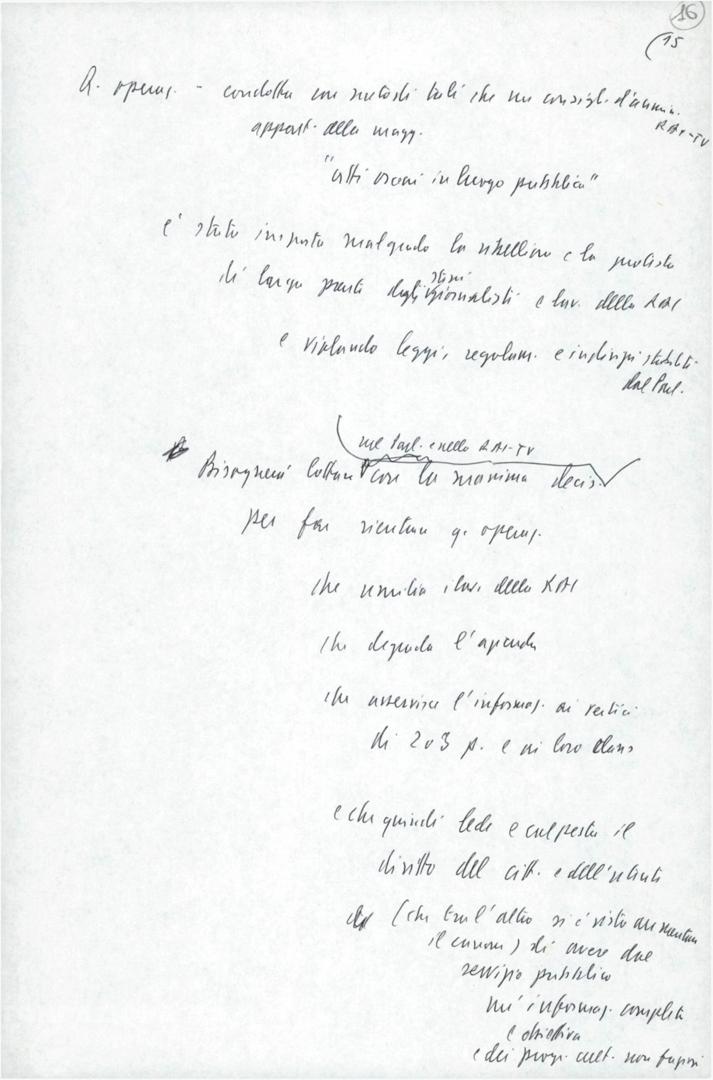 16
15
Q. operaz. - condotta con metodi tali che un consigl. d'ammin. RAI-TV
appart. alla magg.
"atti osceni in luogo pubblico"
è stata imposta malgrado la ribellione e la protesta
di larga parte degli stessi giornalisti e lav. della RAI
e violando leggi, regolam. e indirizzi stabiliti
dal Parl.
nel Parl. e nella RAI-TV
Bisognerà lottare con la massima decis.
per far rientrare q. operaz.
che umilia i lav. della RAI
che degrada l'azienda
che asservisce l'informaz. ai vertici
di 2 o 3 p. e ai loro clans
e che quindi lede e calpesta il
diritto del citt. e dell'utente
(che tra l'altro si è visto aumentare
il canone) di avere dal
servizio pubblico
un'informaz. completa
e obiettiva
e dei progr. cult. non